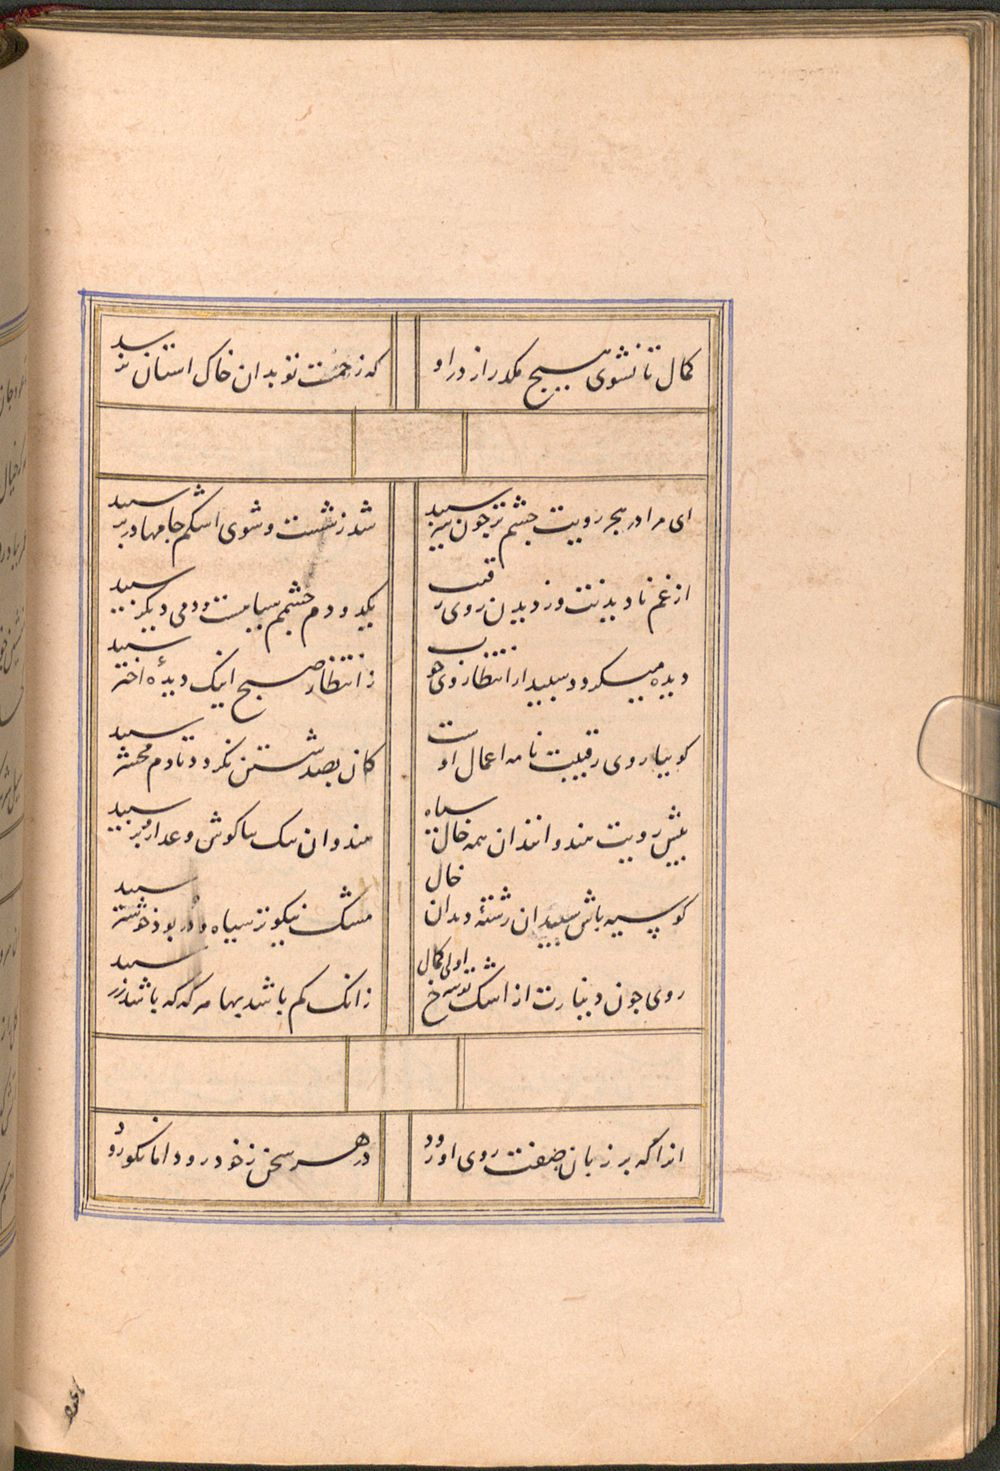 کمال تا نشوی هیچ مکدر از در او
که زحمت تو بدان خاک استان نرسید
ای مرا در هجر رویت چشم تر چون سیم سپید
شد ز شست و شوی اشکم جامها در بر سپید
از غم نادیدنت وز دیدن روی رقیب
یکدو دم چشمم سیاهست و دمی دیگر سپید
دیده میگردد سپید از انتظار روی خوب
ز انتظار صبح اینک دیدهٔ اختر سپید
کو بیا روی رقیبت نامه اعمال اوست
کان بصد شستن نگردد تا دم محشر سپید
پیش رویت هندوانند ان همه خال سیاه
هندوان نیک بناگوش و عذار و بر سپید
کو سیه باش سپید ان رشتهٔ دندان خال
مشک نیکوتر سیاه و در بود خوشتر سپید
روی چون دینارت از اشک تو سرخ اولی کمال
زانک کم باشد بها هرگه که باشد زر سپید
انرا که بر زبان صفت روی او رود
در هر سخن ز خود رود اما نکو رود